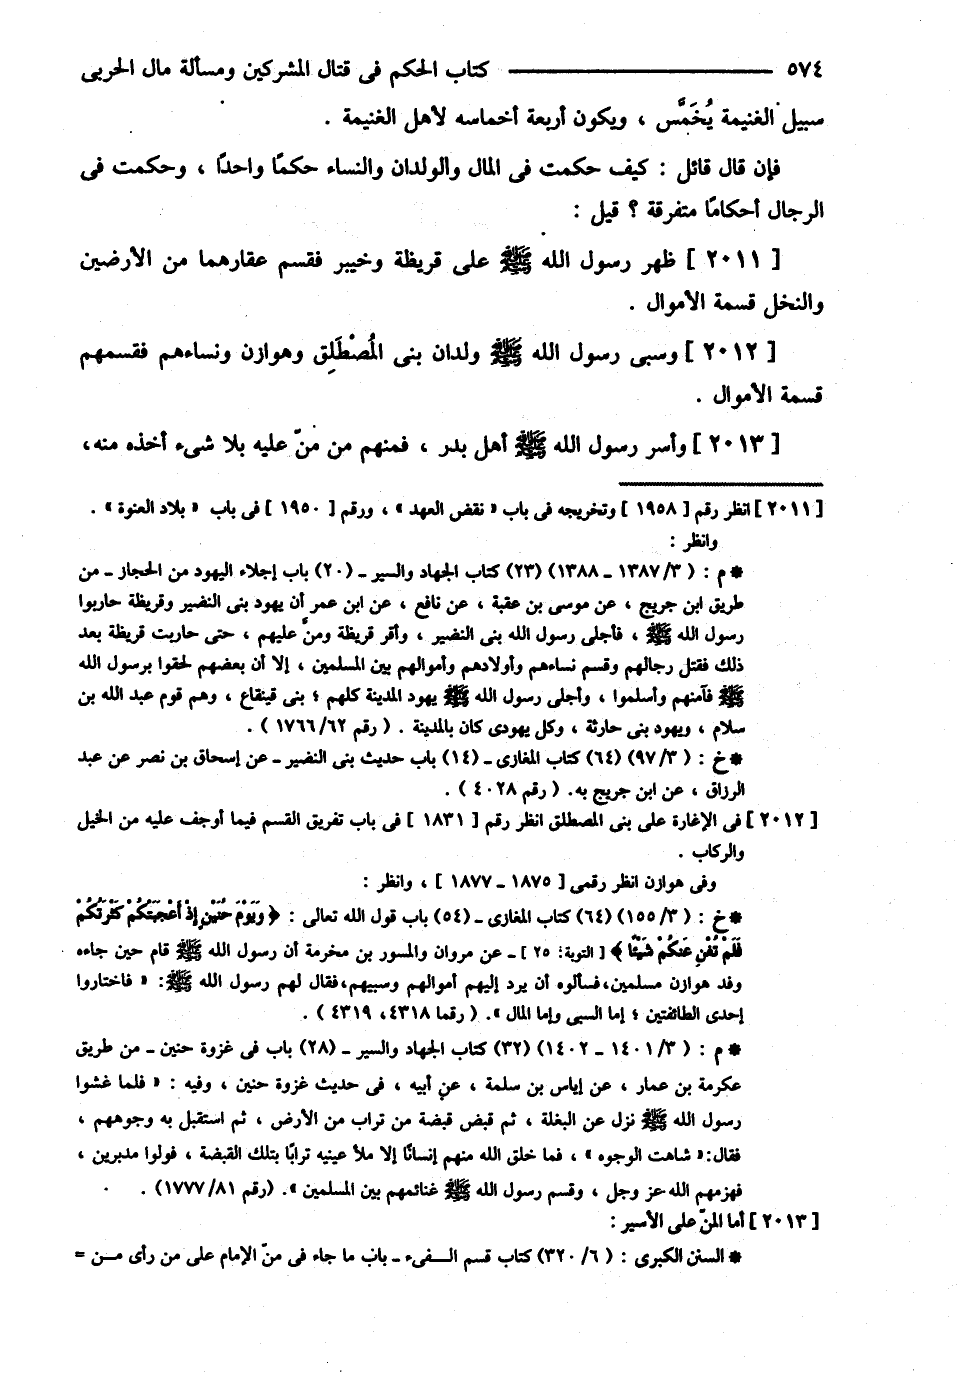 ٥٧٤ ــــــــــــــــ كتاب الحكم فى قتال المشركين ومسألة مال الحربى
سبيل الغنيمة يُخَمَّس ، ويكون أربعة أخماسه لأهل الغنيمة .
فإن قال قائل : كيف حكمت فى المال والولدان والنساء حكمًا واحدًا ، وحكمت فى
الرجال أحكامًا متفرقة ؟ قيل :
[ ٢٠١١ ] ظهر رسول الله ﷺ على قريظة وخيبر فقسم عقارهما من الأرضين
والنخل قسمة الأموال .
[ ٢٠١٢ ] وسبى رسول الله ﷺ ولدان بنى المُصْطَلِق وهوازن ونساءهم فقسمهم
قسمة الأموال .
[ ٢٠١٣ ] وأسر رسول الله ﷺ أهل بدر ، فمنهم من منّ عليه بلا شىء أخذه منه،
[ ٢٠١١ ] انظر رقم [ ١٩٥٨ ] وتخريجه فى باب « نقض العهد » ، ورقم [ ١٩٥٠ ] فى باب « بلاد العنوة » .
وانظر :
* م : ( ٣/ ١٣٨٧ ـ ١٣٨٨) (٢٣) كتاب الجهاد والسير ـ (٢٠) باب إجلاء اليهود من الحجاز ـ من
طريق ابن جريج ، عن موسى بن عقبة ، عن نافع ، عن ابن عمر أن يهود بنى النضير وقريظة حاربوا
رسول الله ﷺ ، فأجلى رسول الله بنى النضير ، وأقر قريظة ومنَّ عليهم ، حتى حاربت قريظة بعد
ذلك فقتل رجالهم وقسم نساءهم وأولادهم وأموالهم بين المسلمين ، إلا أن بعضهم لحقوا برسول الله
ﷺ فآمنهم وأسلموا ، وأجلى رسول الله ﷺ يهود المدينة كلهم ؛ بنى قينقاع ، وهم قوم عبد الله بن
سلام ، ويهود بنى حارثة ، وكل يهودى كان بالمدينة . ( رقم ٦٢/ ١٧٦٦ ) .
* خ : ( ٣/ ٩٧) (٦٤) كتاب المغازى ـ (١٤) باب حديث بنى النضير ـ عن إسحاق بن نصر عن عبد
الرزاق ، عن ابن جريج به. ( رقم ٤٠٢٨ ) .
[ ٢٠١٢ ] فى الإغارة على بنى المصطلق انظر رقم [ ١٨٣١ ] فى باب تفريق القسم فيما أوجف عليه من الخيل
والركاب .
وفى هوازن انظر رقمى [ ١٨٧٥ ـ ١٨٧٧ ] ، وانظر :
* خ : ( ٣/ ١٥٥) (٦٤) كتاب المغازى ـ (٥٤) باب قول الله تعالى : ﴿ وَيَوْمَ حُنَيْنٍ إِذْ أَعْجَبَتْكُمْ كَثْرَتُكُمْ
فَلَمْ تُغْنِ عَنكُمْ شَيْئًا ﴾ [ التوبة: ٢٥ ] ـ عن مروان والمسور بن مخرمة أن رسول الله ﷺ قام حين جاءه
وفد هوازن مسلمين،فسألوه أن يرد إليهم أموالهم وسبيهم،فقال لهم رسول الله ﷺ: « فاختاروا
إحدى الطائفتين ؛ إما السبى وإما المال ». ( رقما ٤٣١٨، ٤٣١٩ ) .
* م : ( ٣/ ١٤٠١ ـ ١٤٠٢) (٣٢) كتاب الجهاد والسير ـ (٢٨) باب فى غزوة حنين ـ من طريق
عكرمة بن عمار ، عن إياس بن سلمة ، عن أبيه ، فى حديث غزوة حنين ، وفيه : « فلما غشوا
رسول الله ﷺ نزل عن البغلة ، ثم قبض قبضة من تراب من الأرض ، ثم استقبل به وجوههم ،
فقال:« شاهت الوجوه » ، فما خلق الله منهم إنسانًا إلا ملأ عينيه ترابًا بتلك القبضة ، فولوا مدبرين ،
فهزمهم الله عز وجل ، وقسم رسول الله ﷺ غنائمهم بين المسلمين ». (رقم ٨١/ ١٧٧٧) .
[ ٢٠١٣ ] أما المنّ على الأسير :
* السنن الكبرى : ( ٦/ ٣٢٠) كتاب قسم الفىء ـ باب ما جاء فى منّ الإمام على من رأى مـن =